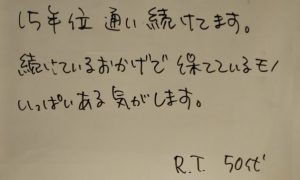 15年位 通い 続けてます。
続けているおかげで 得てているモノ
いっぱいある 気がします。
R.T. 50代